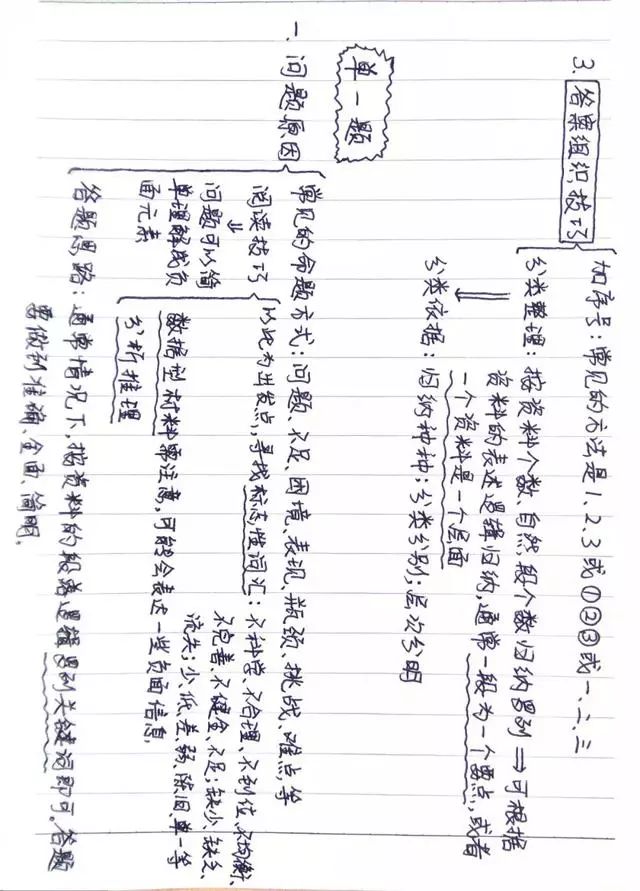 3. 答案组织技巧
加序号：常见的方法是1、2、3或①②③或一、二、三
分类整理：按资料个数、自然段个数归纳罗列⇒可根据
资料的表述逻辑归纳，通常一段为一个要点，或者
一个资料是一个层面
分类依据：归纳种种；分类分别；层次分明
单一题
一、问题原因
常见的命题方式：问题、不足、困境、表现、瓶颈、挑战、难点等
阅读技巧
⇓
问题可以简
单理解成负
面元素
以此为出发点，寻找标志性词汇：不科学、不合理、不到位、不均衡、
不完善、不健全、不足；缺少、缺乏、
流失；少、低、差、弱、陈旧、单一等
数据型材料需注意，可能会表述一些负面信息
分析推理
答题思路：通常情况下，按资料的段落逻辑罗列关键词即可。答题
要做到准确、全面、简明。